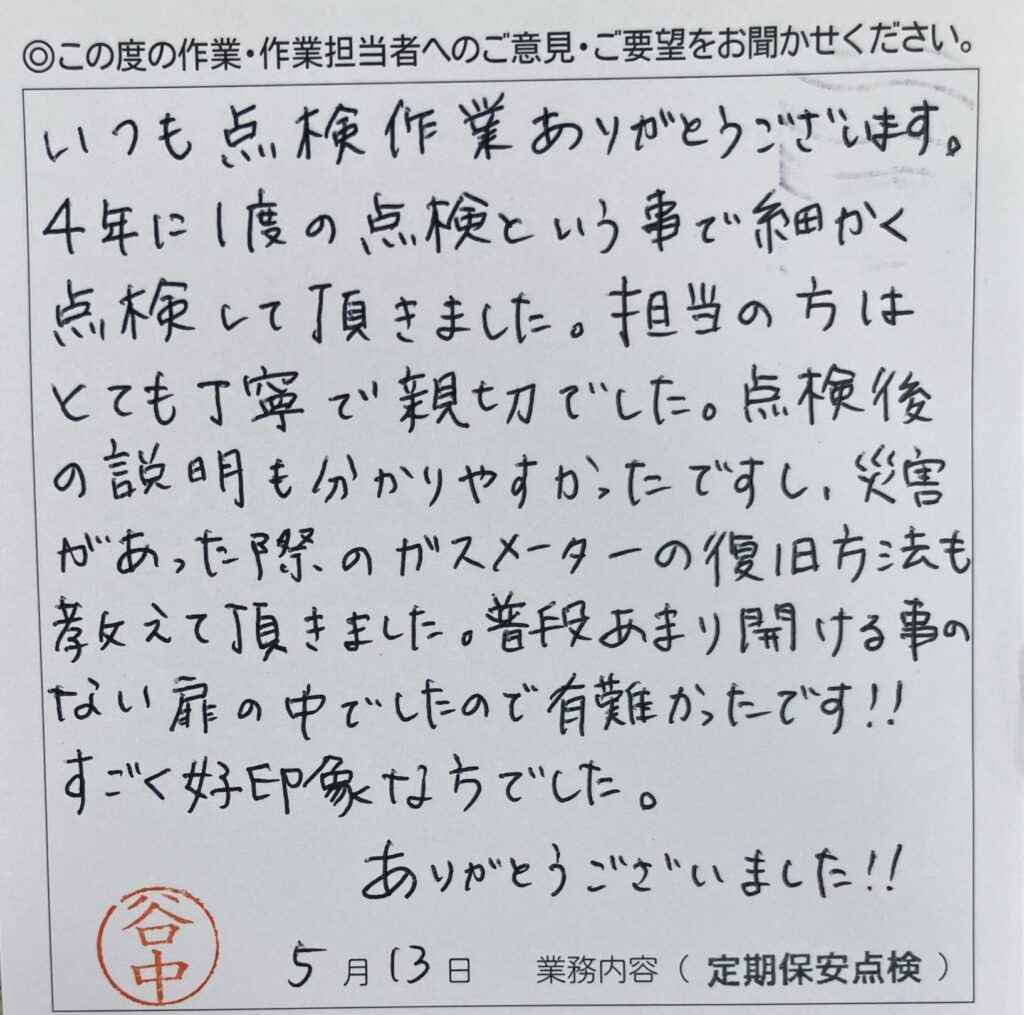 ◎この度の作業・作業担当者へのご意見・ご要望をお聞かせください。
いつも点検作業ありがとうございます。
4年に1度の点検という事で細かく
点検して頂きました。担当の方は
とても丁寧で親切でした。点検後
の説明も分かりやすかったですし、災害
があった際のガスメーターの復旧方法も
教えて頂きました。普段あまり開ける事の
ない扉の中でしたので有難かったです!!
すごく好印象な方でした。
ありがとうございました!!
谷中
5月13日 業務内容(定期保安点検)